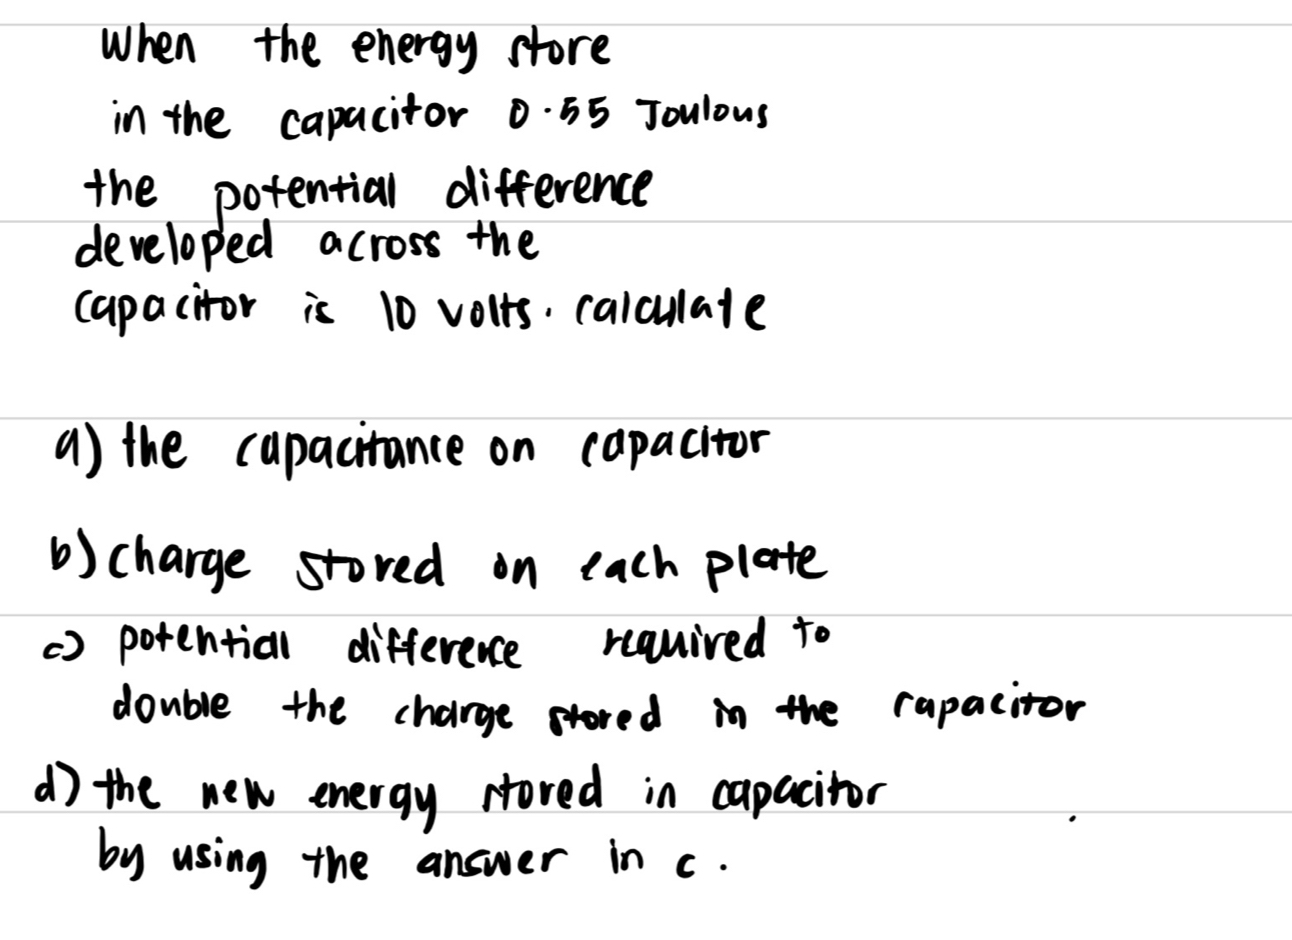 When the energy store
in the capacitor 0.55 Joulous
the potential difference
developed across the
capacitor is 10 volts. calculate
a) the capacitance on capacitor
b) charge stored on each plate
c) potential difference required to
double the charge stored in the capacitor
d) the new energy stored in capacitor
by using the answer in c.